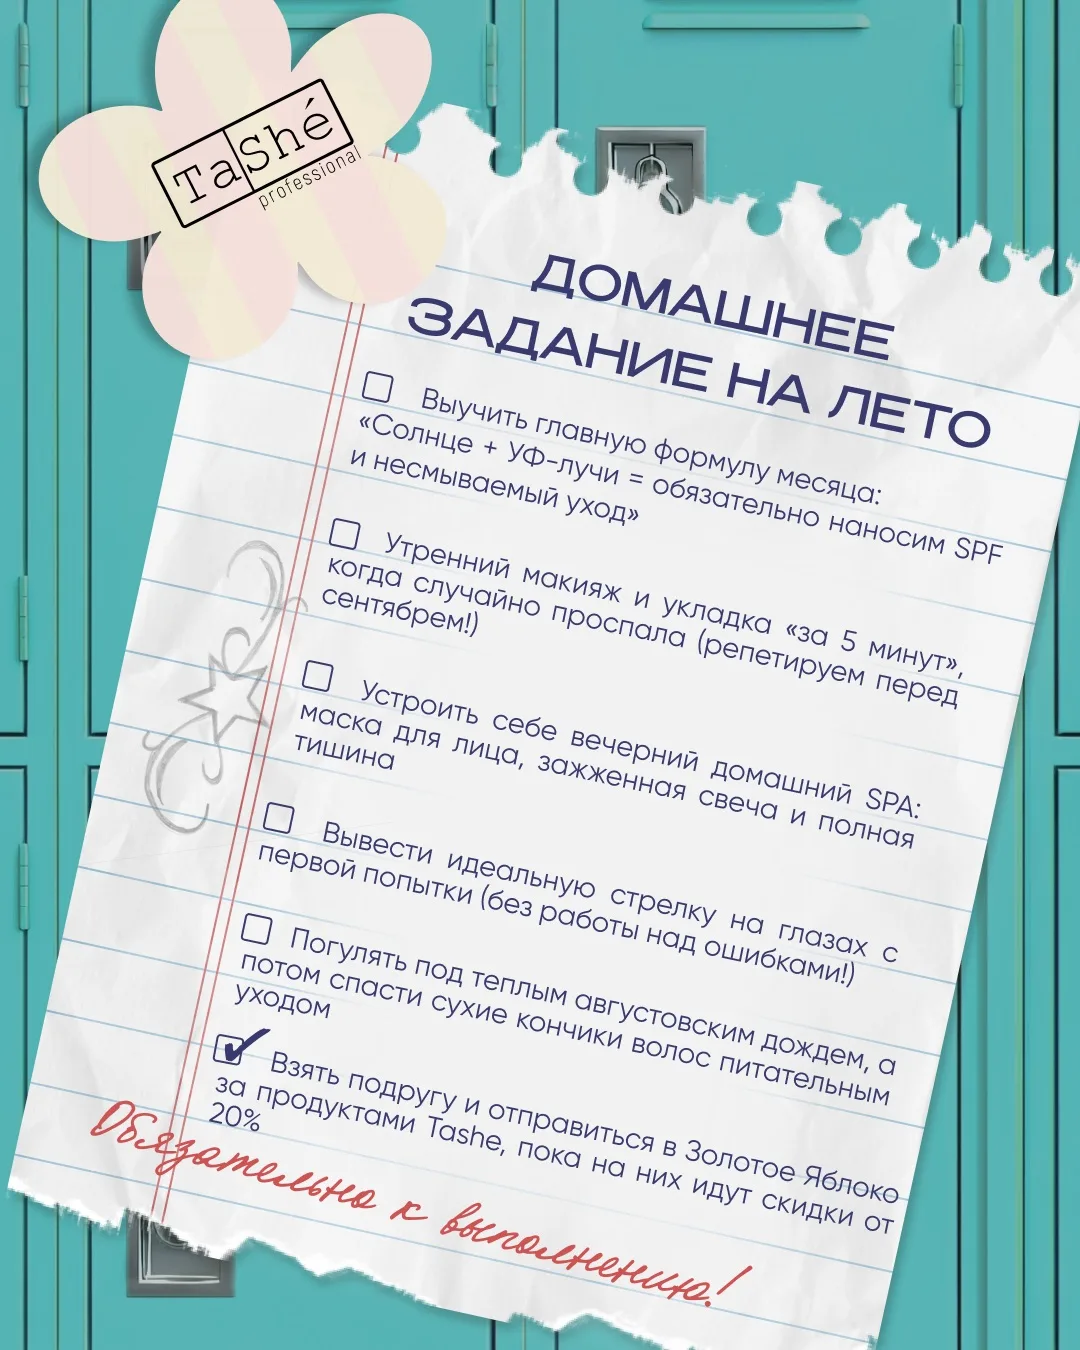 TaShé
professional
ДОМАШНЕЕ
ЗАДАНИЕ НА ЛЕТО
Выучить главную формулу месяца:
«Солнце + УФ-лучи = обязательно наносим SPF
и несмываемый уход»
Утренний макияж и укладка «за 5 минут»,
когда случайно проспала (репетируем перед
сентябрем!)
Устроить себе вечерний домашний SPA:
маска для лица, зажженная свеча и полная
тишина
Вывести идеальную стрелку на глазах с
первой попытки (без работы над ошибками!)
Погулять под теплым августовским дождем, а
потом спасти сухие кончики волос питательным
уходом
Взять подругу и отправиться в Золотое Яблоко
за продуктами Tashe, пока на них идут скидки от
20%
Обязательно к выполнению!